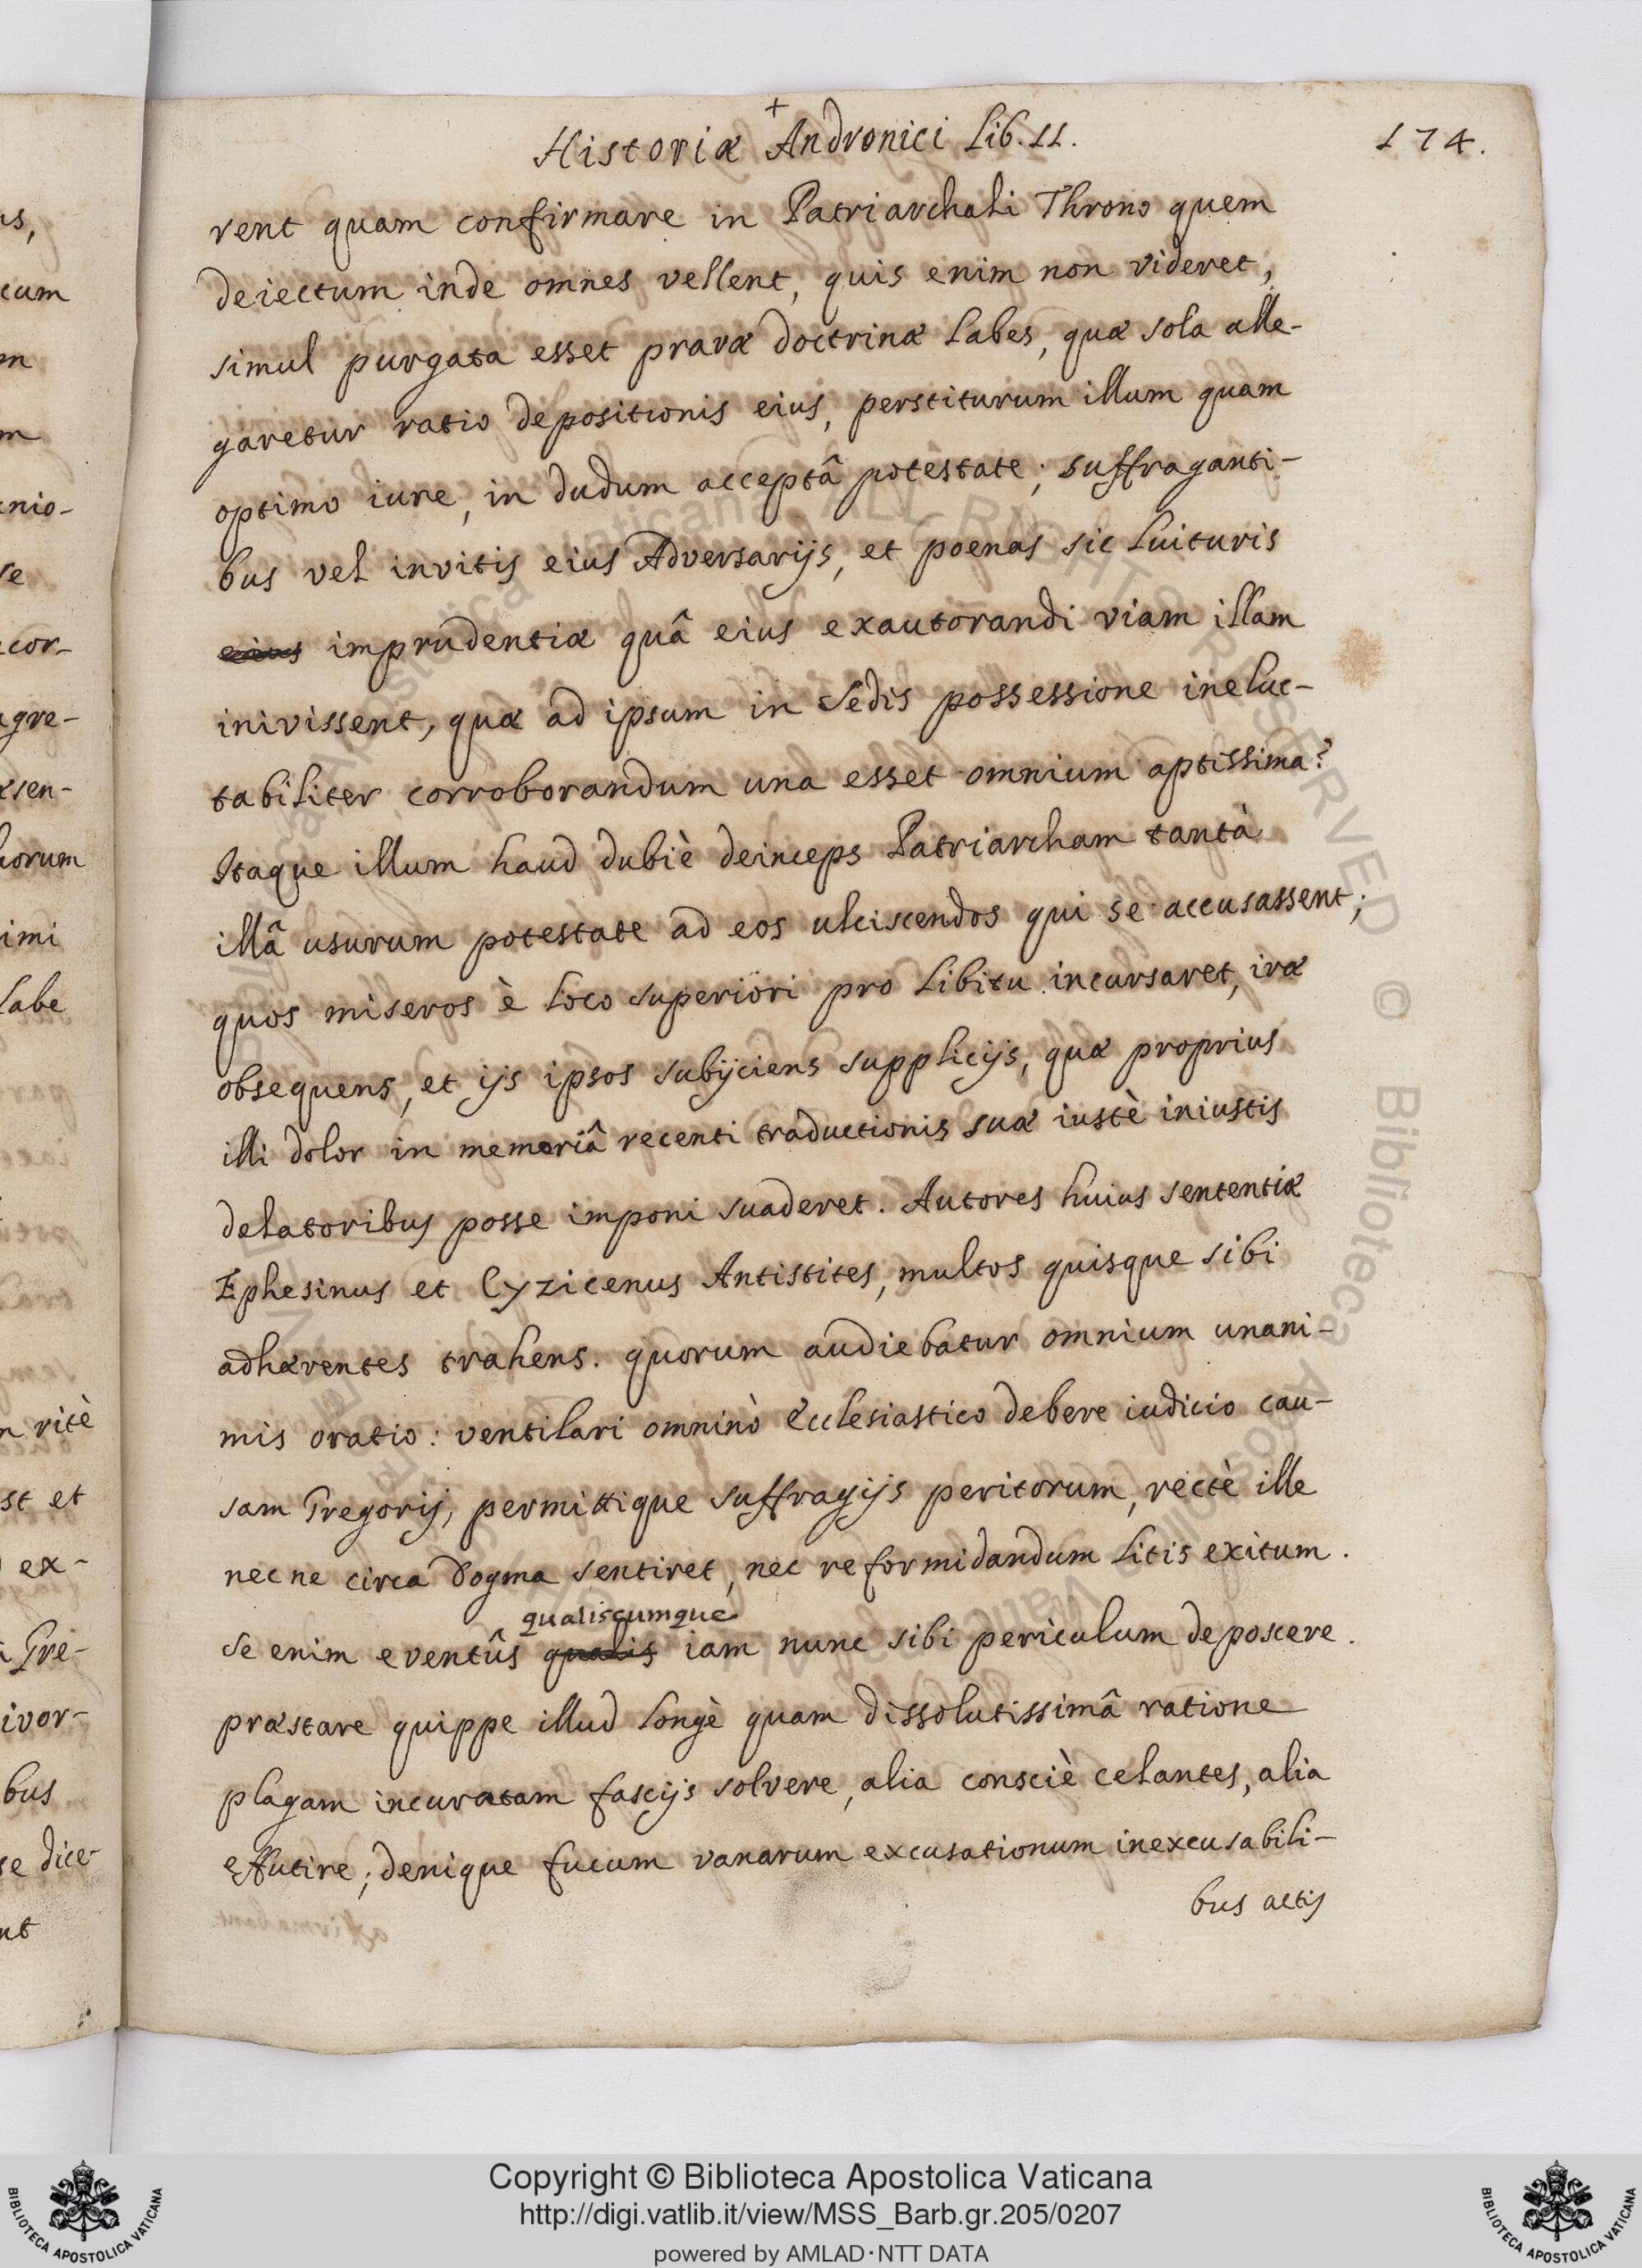 Historiæ Andronici Lib. II.
174.
rent quam confirmare in Patriarchali Throno quem
deiectum inde omnes vellent, quis enim non videret,
simul purgata esset pravæ doctrinæ labes, quæ sola alle-
garetur ratio depositionis eius, perstiturum illum quam
optimo iure, in dudum acceptâ potestate; suffraganti-
bus vel invitis eius Adversarijs, et poenas sic luituris
imprudentiæ quâ eius exautorandi viam illam
inivissent, quæ ad ipsum in Sedis possessione ineluc-
tabiliter corroborandum una esset omnium aptissima?
Itaque illum haud dubiè deinceps Patriarcham tantà
illâ usurum potestate ad eos ulciscendos qui se accusassent;
quos miseros è loco superiori pro libitu incursaret, iræ
obsequens, et ijs ipsos subijciens supplicijs, quæ proprius
illi dolor in memoriâ recenti traductionis suæ iustè iniustis
delatoribus posse imponi suaderet. Autores huius sententiæ
Ephesinus et Cyzicenus Antistites, multos quisque sibi
adhærentes trahens. quorum audiebatur omnium unani-
mis oratio: ventilari omninò Ecclesiastico debere iudicio cau-
sam Gregorij, permittique suffragijs peritorum, rectè ille
nec ne circa Dogma sentiret, nec reformidandum litis exitum.
qualiscumque
se enim eventûs qualis iam nunc sibi periculum deposcere.
præstare quippe illud longè quam dissolutissimâ ratione
plagam incuratam fascijs solvere, alia consciè celantes, alia
effutire; denique fucum vanarum excusationum inexcusabili-
bus actis
us,
cum
m
m
nio-
se
cor-
agre-
æsen-
horum
imi
labe
n ritè
st et
ex-
Gre-
ivor-
bus
se dice-
nt
Copyright © Biblioteca Apostolica Vaticana
http://digi.vatlib.it/view/MSS_Barb.gr.205/0207
powered by AMLAD·NTT DATA
BIBLIOTECA APOSTOLICA VATICANA
BIBLIOTECA APOSTOLICA VATICANA